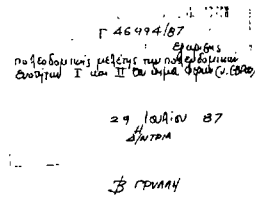 Γ 46494/87
Εγκρισης
πολεοδομικής μελέτης των πολεοδομικών
ενοτήτων Ι και ΙΙ του δήμου
29 Ιουλίου 87
Η
Δ/ΝΤΡΙΑ
Β ΓΡΥΛΛΗ